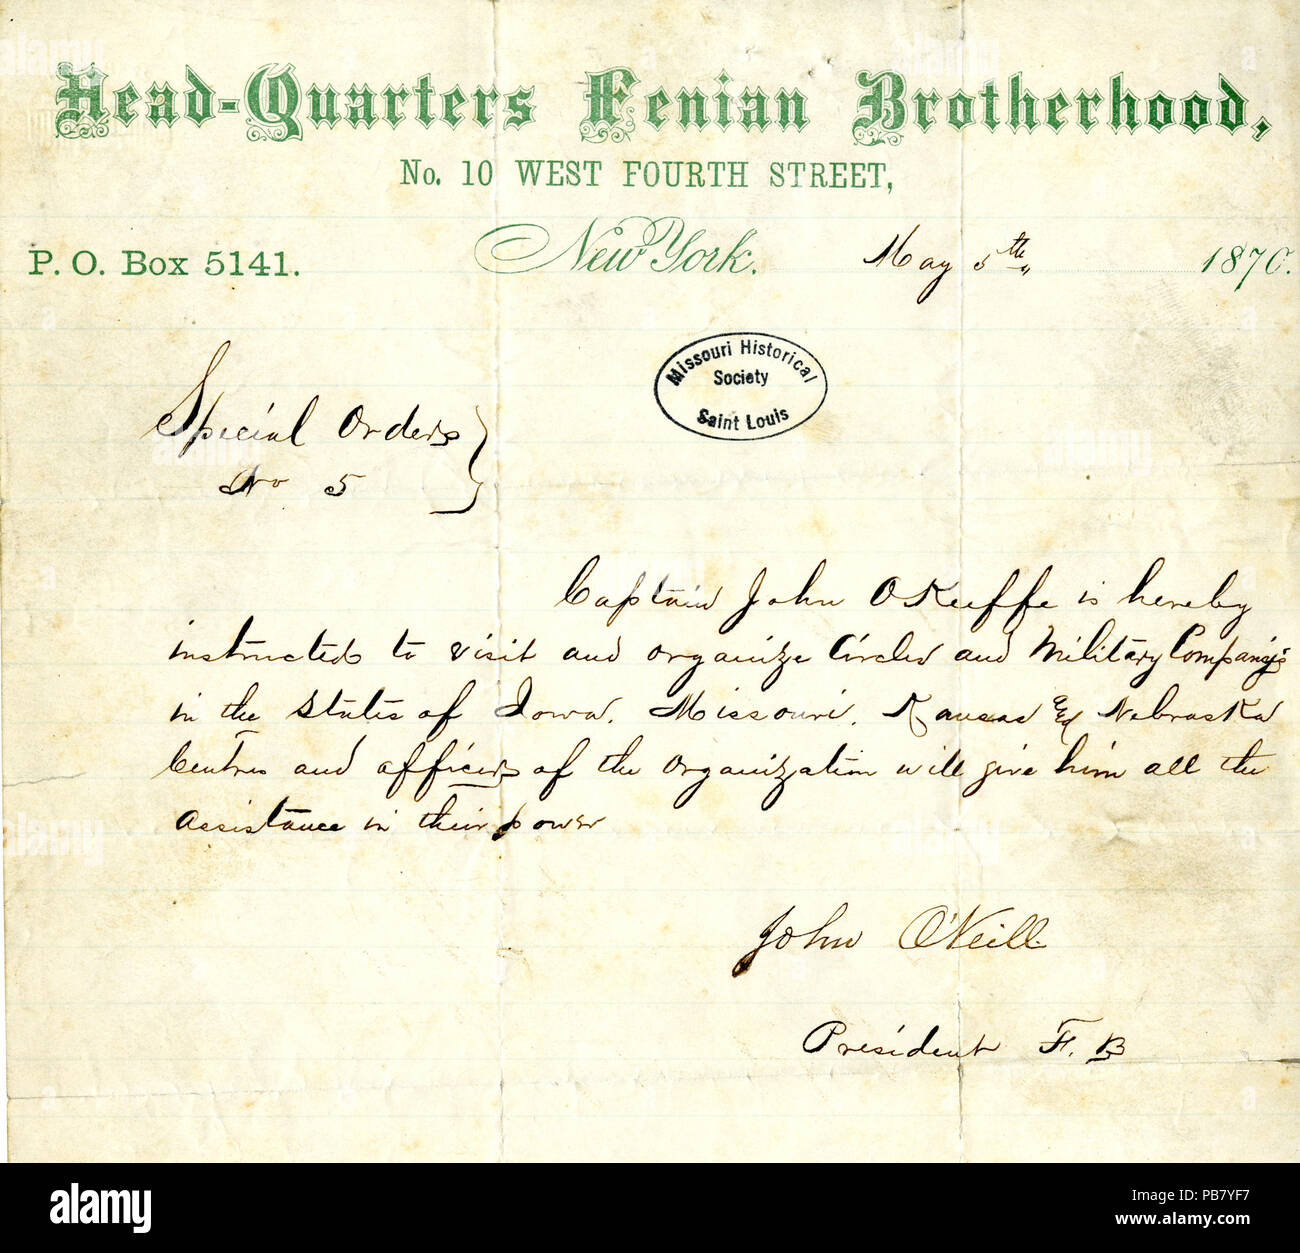 Head-Quarters Fenian Brotherhood,
No. 10 WEST FOURTH STREET,
P. O. Box 5141. New York. May 5th 1870.
Missouri Historical
Society
Saint Louis
Special Orders
No 5
Captain John OKeiffe is hereby
instructed to visit and organize Circles and Military Companys
in the States of Iowa. Missouri. Kansas & Nebraska
Centres and officers of the Organization will give him all the
assistance in their power
John O'Neill
President F. B
alamy
Image ID: PB7YF7
www.alamy.com